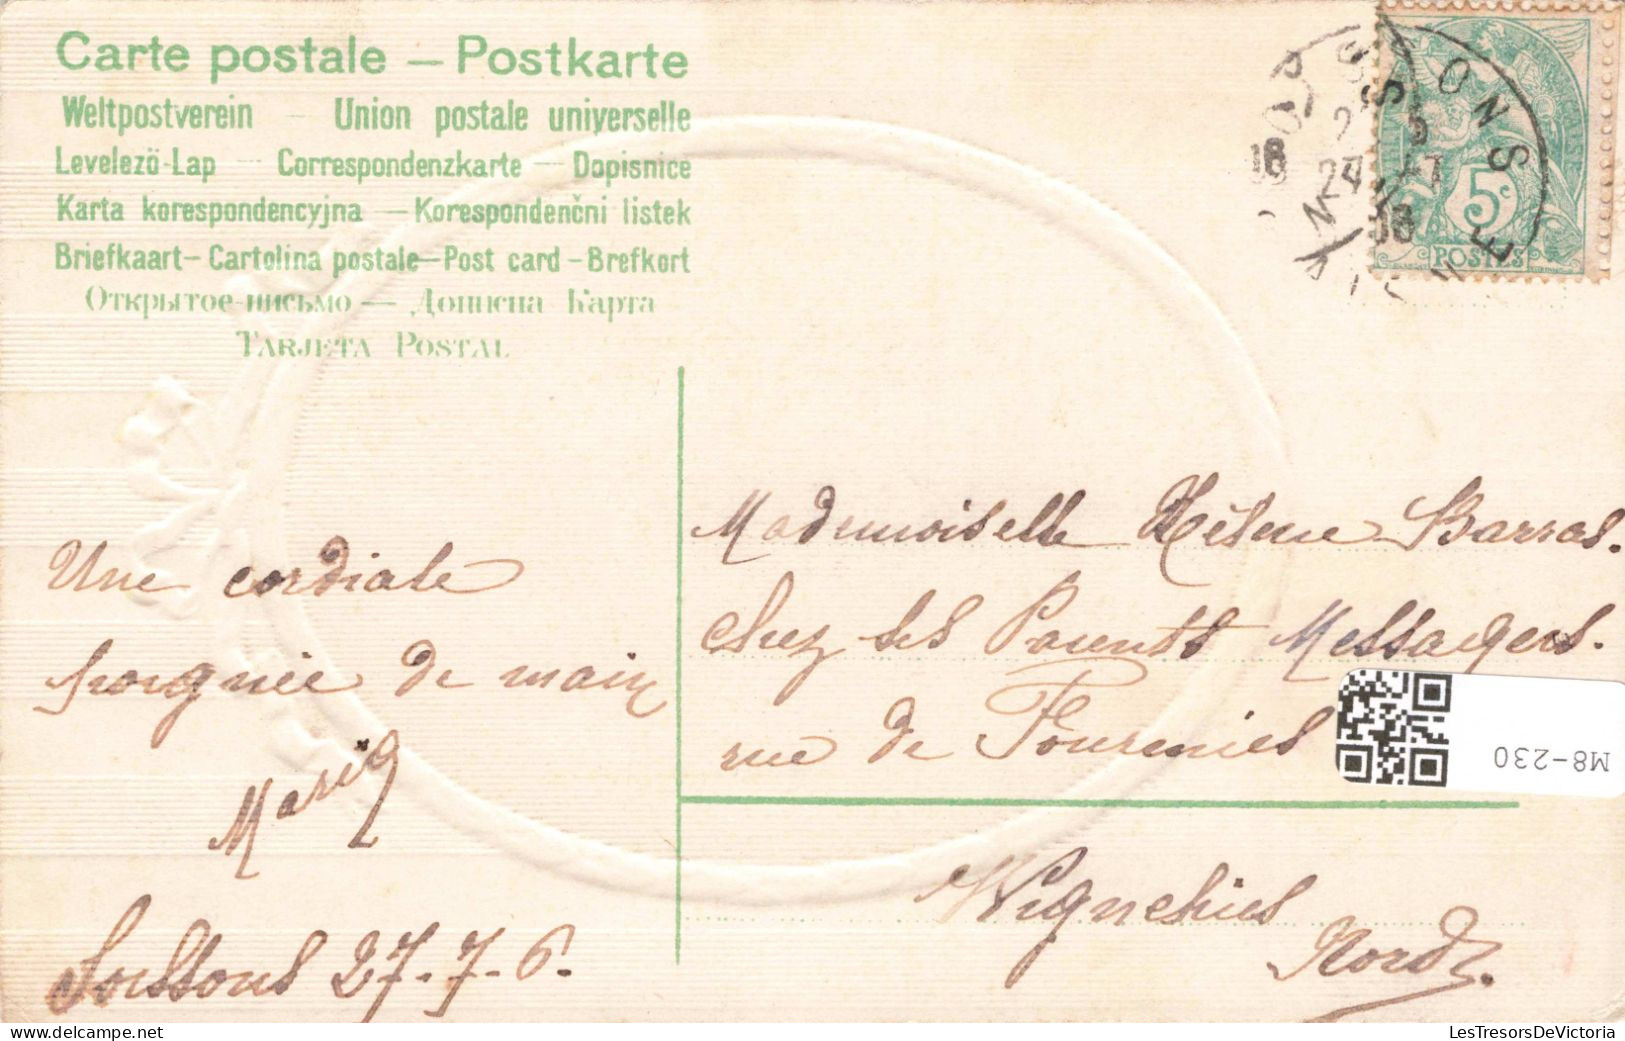 Carte postale — Postkarte
Weltpostverein — Union postale universelle
Levelező-Lap — Correspondenzkarte — Dopisnice
Karta korespondencyjna — Korespondenčni listek
Briefkaart — Cartolina postale — Post card — Brefkort
Открытое письмо — Дописна Карта
TARJETA POSTAL
5c
POSTES
SOISSONS
AISNE
Mademoiselle Hélène Barras.
Chez ses Parents Messagers.
rue de Fourmies
Wignehies
Nord.
Une cordiale
poignée de main
Maria
Soissons 27-7-6.
M8-230
LesTresorsDeVictoria